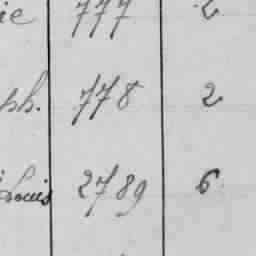 ie 777 2
ph. 778 2
Louis 2789 6